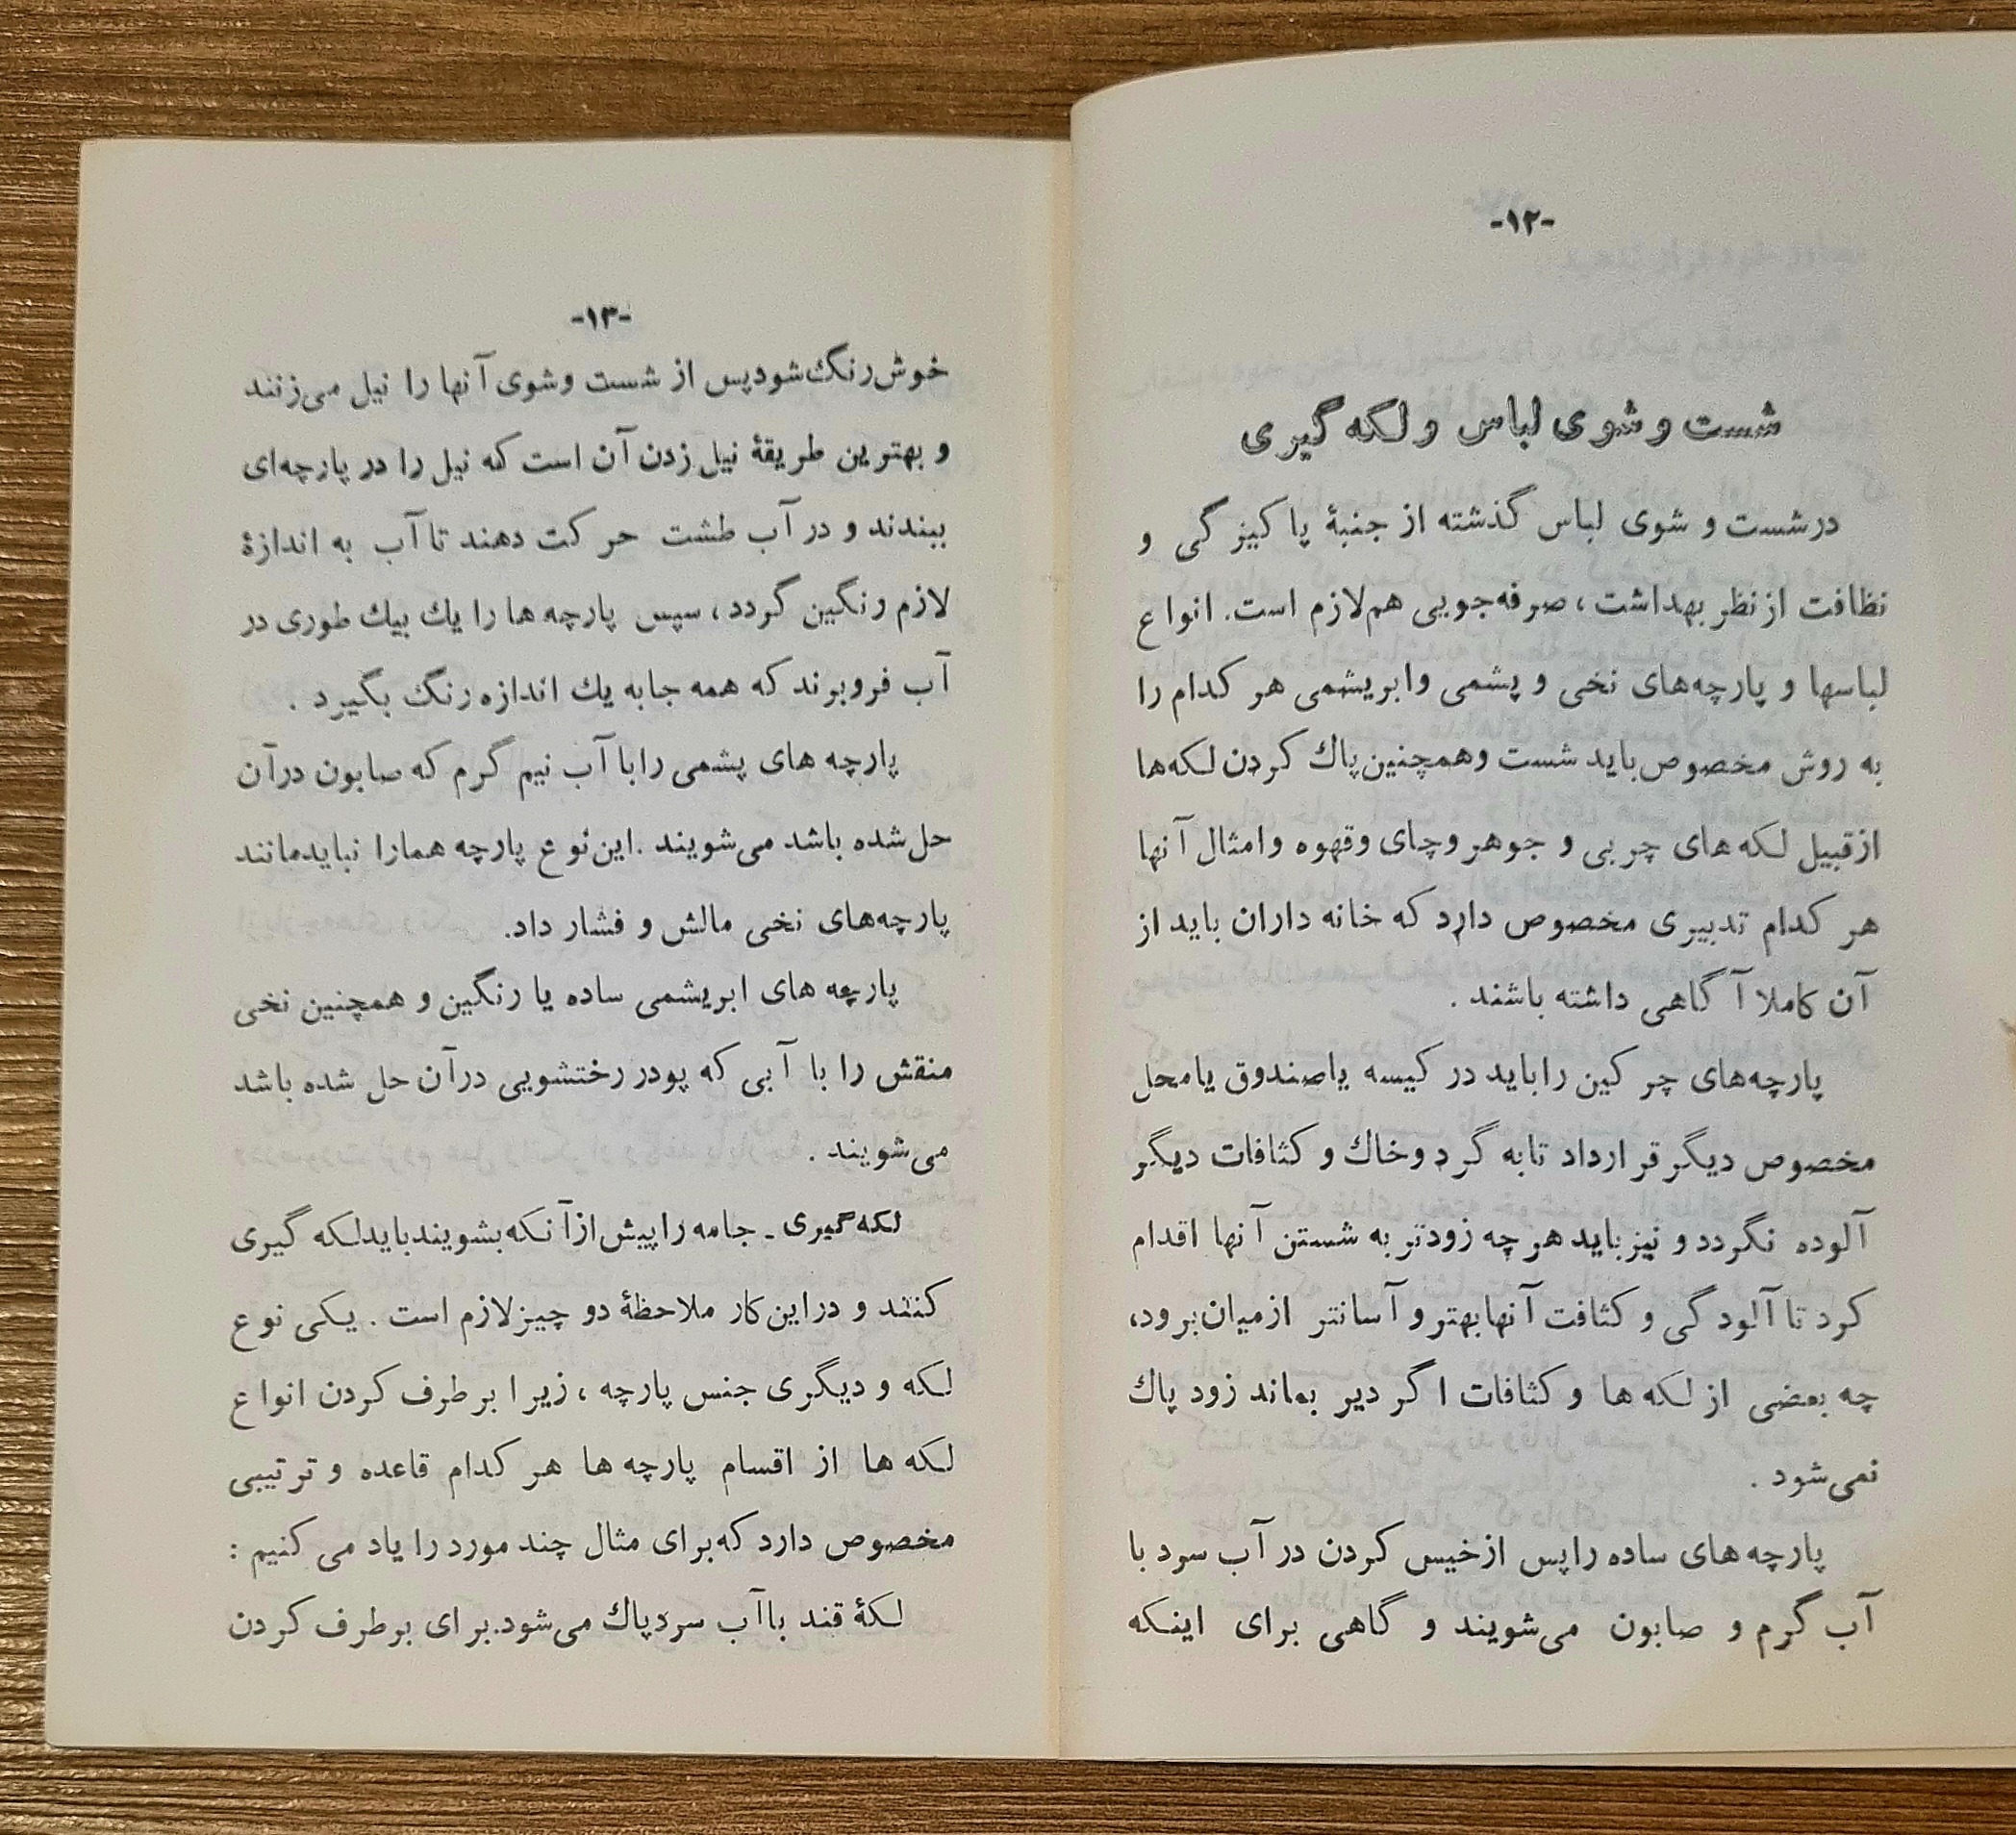 -۱۲-
شست و شوی لباس و لکه گیری
درشست و شوی لباس گذشته از جنبهٔ پاکیزگی و
نظافت از نظر بهداشت، صرفه‌جویی هم‌لازم است. انواع
لباسها و پارچه‌های نخی و پشمی وابریشمی هر کدام را
به روش مخصوص باید شست وهمچنین پاك کردن لکه‌ها
ازقبیل لکه های چربی و جوهر وچای وقهوه وامثال آنها
هر کدام تدبیری مخصوص دارد که خانه داران باید از
آن کاملا آگاهی داشته باشند .
پارچه‌های چرکین راباید در کیسه یاصندوق یامحل
مخصوص دیگر قرارداد تابه گرد وخاك و کثافات دیگر
آلوده نگردد و نیز باید هر چه زودتر به شستن آنها اقدام
کرد تا آلودگی و کثافت آنها بهتر و آسانتر ازمیان برود،
چه بعضی از لکه ها و کثافات اگر دیر بماند زود پاك
نمی‌شود .
پارچه های ساده راپس ازخیس کردن در آب سرد با
آب گرم و صابون می‌شویند و گاهی برای اینکه
-۱۳-
خوش‌رنگ‌شودپس از شست وشوی آنها را نیل می‌زنند
و بهترین طریقهٔ نیل زدن آن است که نیل را در پارچه‌ای
ببندند و در آب طشت حرکت دهند تا آب به اندازهٔ
لازم رنگین گردد، سپس پارچه ها را یك بیك طوری در
آب فروبرند که همه جابه یك اندازه رنگ بگیرد .
پارچه های پشمی رابا آب نیم گرم که صابون درآن
حل‌شده باشد می‌شویند .این‌نوع پارچه همارا نبایدمانند
پارچه‌های نخی مالش و فشار داد.
پارچه های ابریشمی ساده یا رنگین و همچنین نخی
منقش را با آبی که پودر رختشویی درآن حل شده باشد
می‌شویند .
لکه گیری ـ جامه راپیش ازآنکه بشویند بایدلکه گیری
کنند و دراین‌کار ملاحظهٔ دو چیز لازم است . یکی نوع
لکه و دیگری جنس پارچه ، زیرا برطرف کردن انواع
لکه ها از اقسام پارچه ها هر کدام قاعده و ترتیبی
مخصوص دارد که‌برای مثال چند مورد را یاد می کنیم :
لکهٔ قند باآب سردپاك می‌شود.برای برطرف کردن